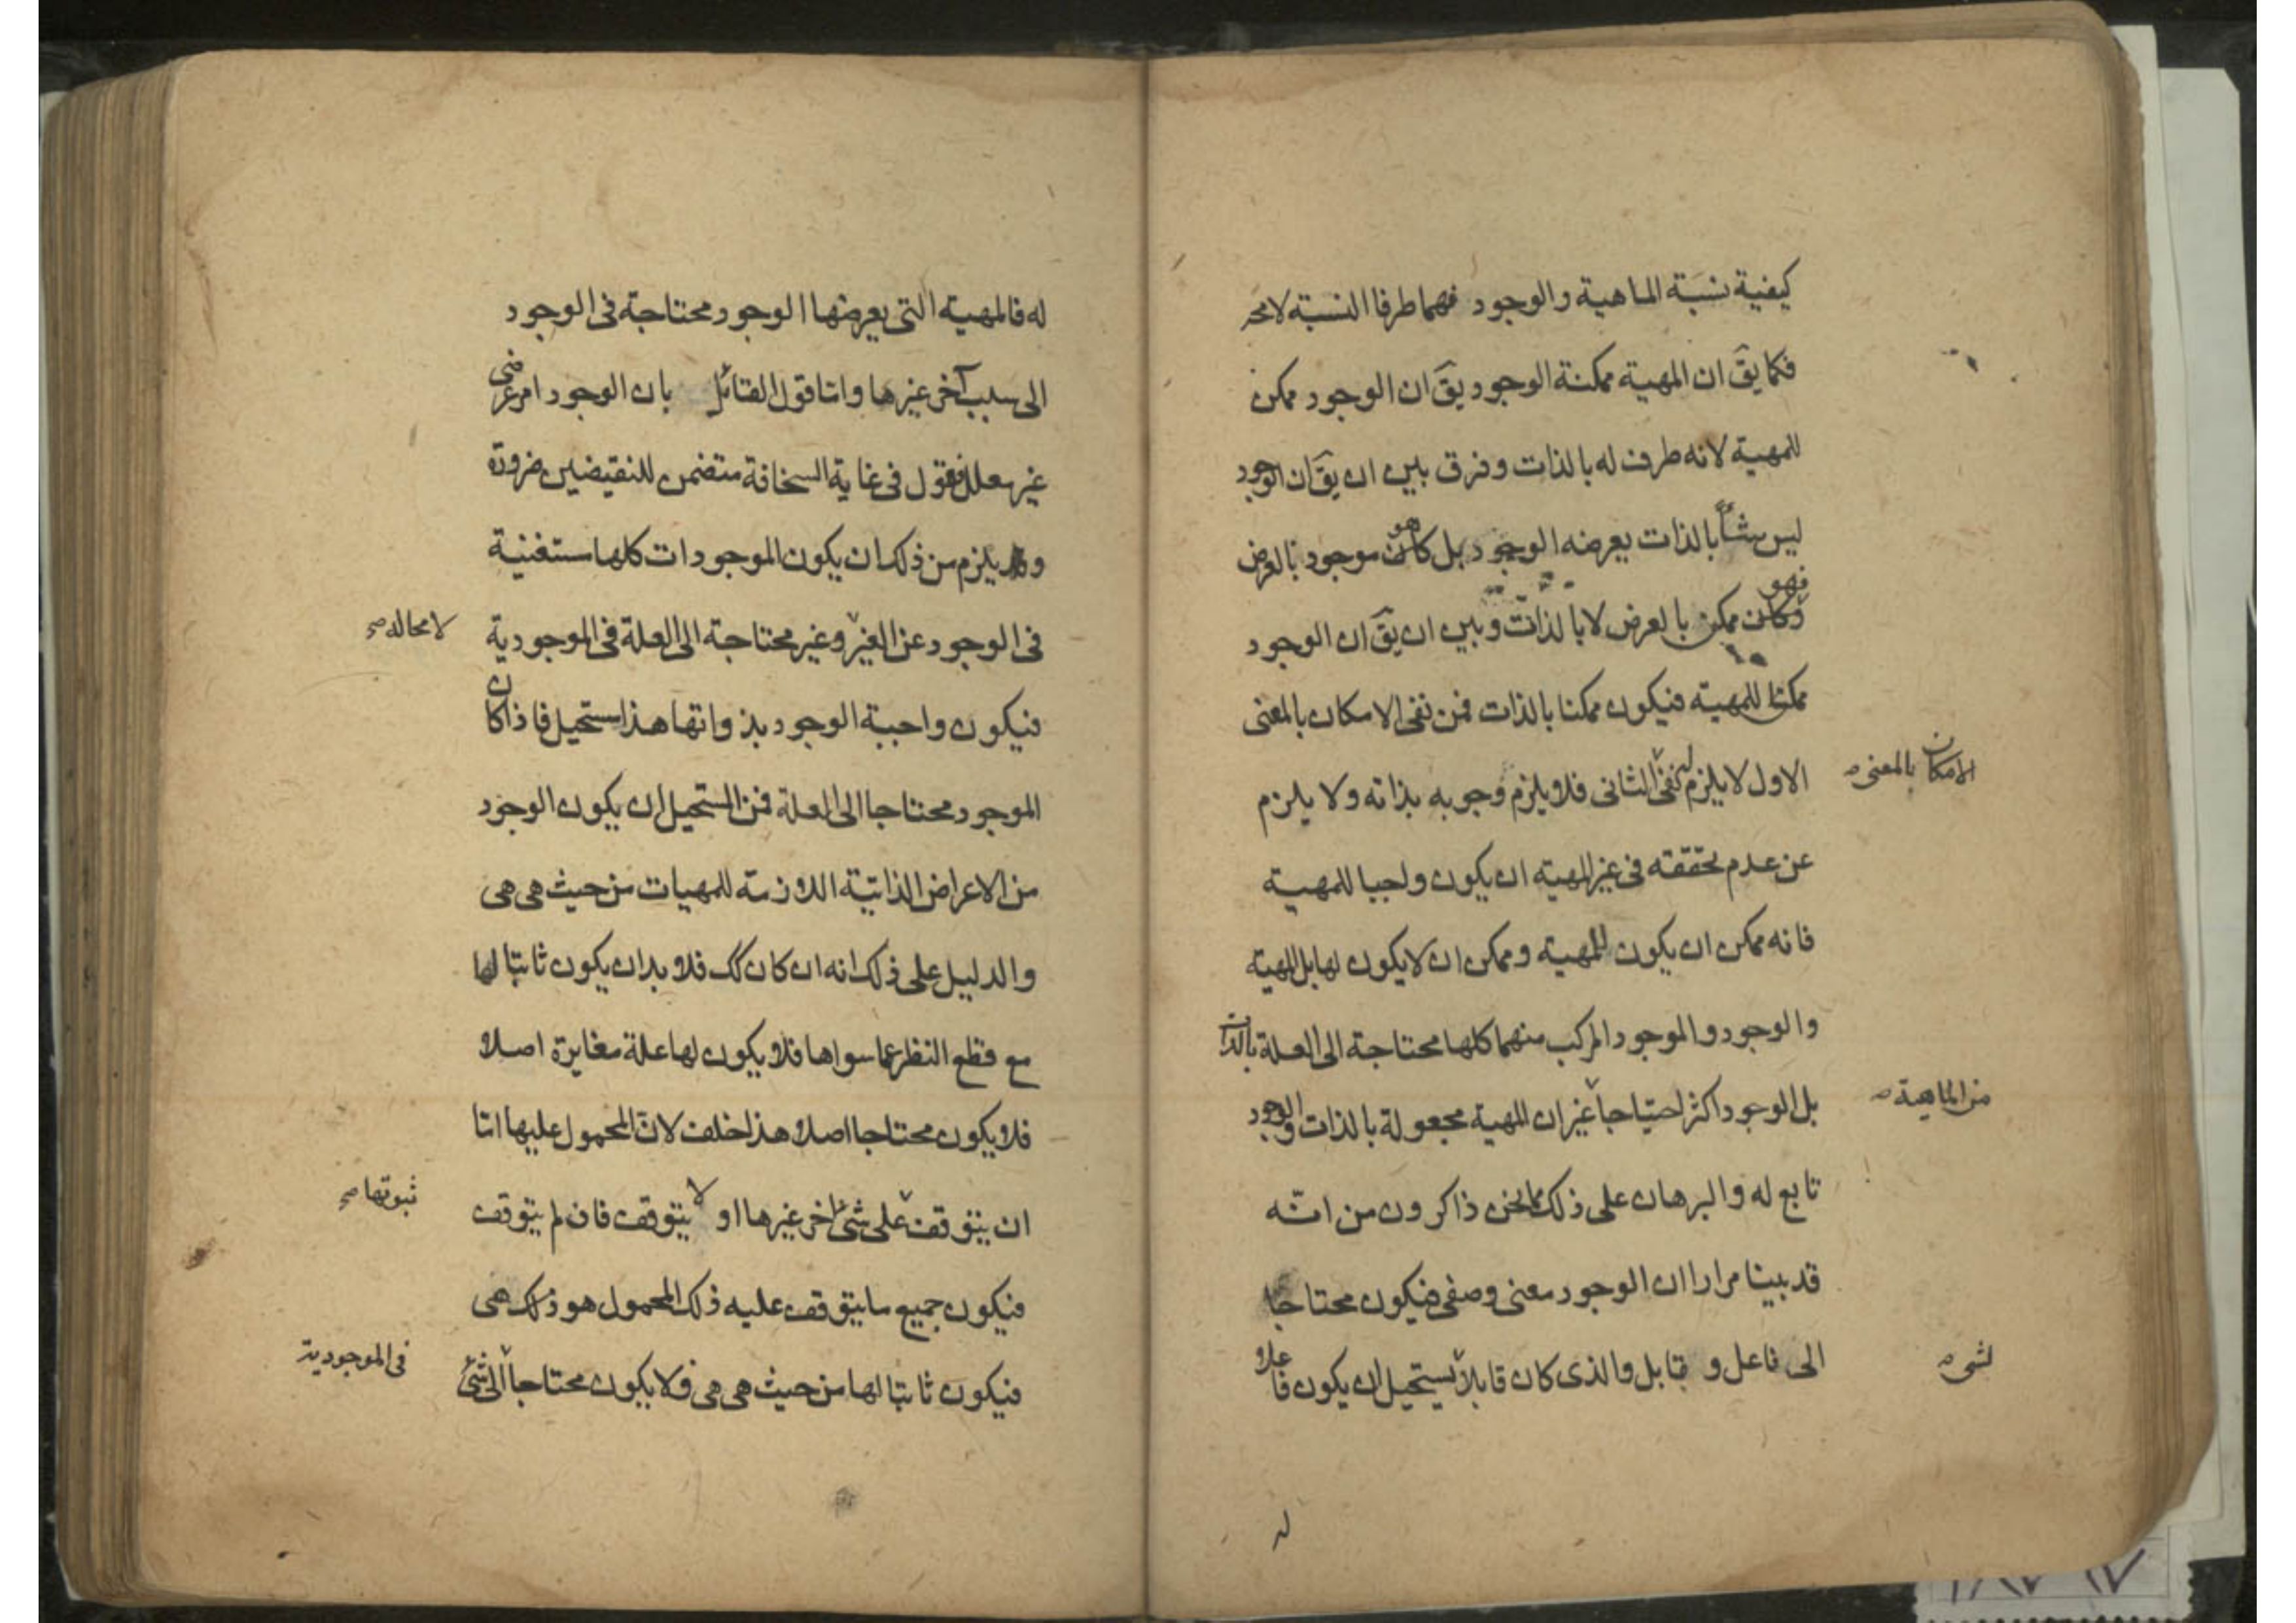 كيفية نسبة الماهية والوجود فهما طرفا النسبة لامحه
فكما يقَ ان المهية ممكنة الوجود يقَ ان الوجود ممكن
للمهية لانه طرف له بالذات وفرق بين ان يقَ ان الوجود
ليس شيئاً بالذات يعرضه الوجود بل كان هو موجود بالعرض
فهو
وكان ممكن بالعرض لا بالذات وبين ان يقَ ان الوجود
ممكنا للمهية فيكون ممكنا بالذات فمن نفى الامكان بالمعنى
الاول لا يلزم نفى الثانى فلا يلزم وجوبه بذاته ولا يلزم
الامكان بالمعنى صح
عن عدم تحققه فى غير المهية ان يكون واجبا للمهية
فانه ممكن ان يكون للمهية وممكن ان لا يكون لها بل المهية
والوجود والموجود المركب منهما كلها محتاجة الى العلة بالذات
بل الوجود اكثر احتياجا غير ان المهية مجعولة بالذات والوجود
من الماهية صح
تابع له والبرهان على ذلك مما نحن ذاكرون من انه
قد بينا مرارا ان الوجود معنى وصفى فيكون محتاجا
الى فاعل و قابل والذى كان قابلا يستحيل ان يكون فاعلا
لشى صح
له
له فالمهية التى يعرضها الوجود محتاجة فى الوجود
الى سبب آخر غيرها واما قول القائل بان الوجود امر عرضى
غير معلل فقول فى غاية السخافة متضمن للنقيضين ضرورة
و يلزم من ذلك ان يكون الموجودات كلها مستغنية
فى الوجود عن الغير وغير محتاجة الى العلة فى الموجودية
لا محاله صح
فيكون واجبة الوجود بذواتها هذا مستحيل فاذا كان
الموجود محتاجا الى العلة فمن المستحيل ان يكون الوجود
من الاعراض الذاتية اللازمة للمهيات من حيث هى هى
والدليل على ذلك انه ان كان كك فلا بد ان يكون ثابتا لها
مع قطع النظر عما سواها فلا يكون لها علة مغايرة اصلا
فلا يكون محتاجا اصلا هذا خلف لان المحمول عليها اما
ان يتوقف على شئ اخر غيرها او لا يتوقف فان لم يتوقف
ثبوتها صح
فيكون جميع ما يتوقف عليه ذلك المحمول هو ذلك هى
فيكون ثابتا لها من حيث هى هى فلا يكون محتاجا الى شئ
فى الموجودية